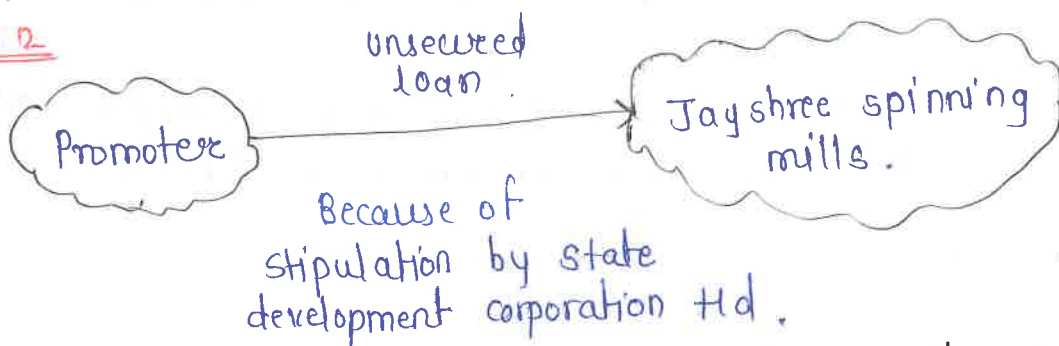 2
unsecured
loan.
Promoter
Jayshree spinning
mills.
Because of
stipulation by state
development corporation Ltd.